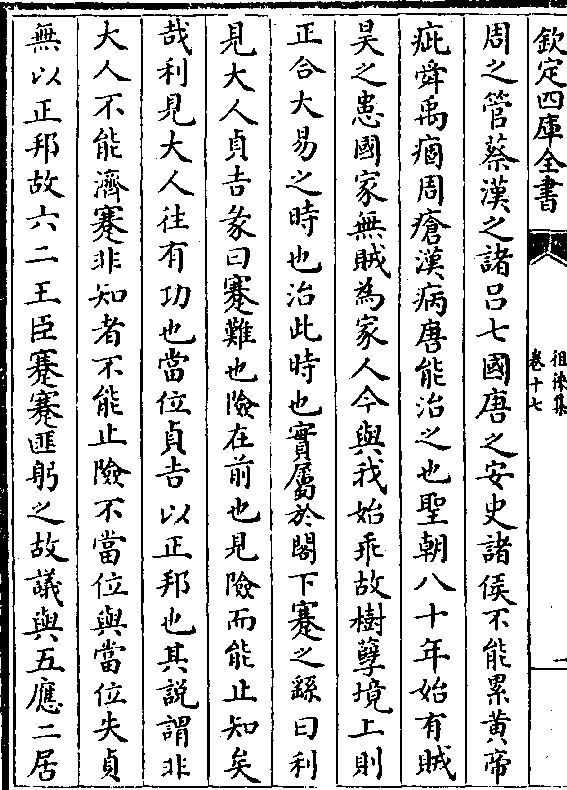 欽定四庫全書
徂徠集
卷十七
周之管蔡漢之諸吕七國唐之安史諸侯不能累黄帝
疵舜禹痼周瘡漢病唐能治之也聖朝八十年始有賊
昊之患國家無賊為家人今與我始乖故樹孽境上則
正合大易之時也治此時也實屬於閣下蹇之繇曰利
見大人貞吉彖曰蹇難也險在前也見險而能止知矣
哉利見大人往有功也當位貞吉以正邦也其説謂非
大人不能濟蹇非知者不能止險不當位與當位失貞
無以正邦故六二王臣蹇蹇匪躬之故議與五應二居